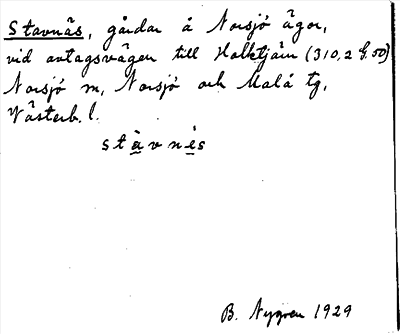 Stavnäs, gårdar å Norsjö ägor,
vid avtagsvägen till Holktjärn (310,2 G.50)
Norsjö sn, Norsjö och Malå tg,
Västerb. l.
stàvnés
B. Nygren 1929